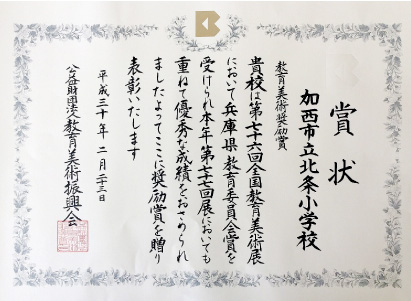 賞状
教育美術奨励賞
加西市立北条小学校
貴校は第七十六回全国教育美術展
において兵庫県教育委員会賞を
受けられ本年第七十七回展においても
重ねて優秀な成績をおさめられ
ましたよってここに奨励賞を贈り
表彰いたします
平成三十年二月二十三日
公益財団法人教育美術振興会